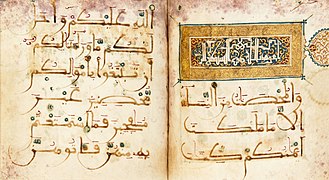 والمحصنت من النساء
إلا ما ملكت
أيمنكم كتب
الله عليكم وأحل
لكم ما وراء ذلكم
أن تبتغوا بأمولكم
محصنين غير
مسفحين فما استمتعتم
به منهن فآتوهن